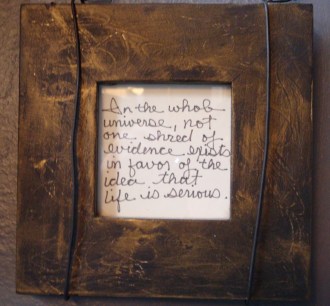 In the whole
universe, not
one shred of
evidence exists
in favor of the
idea that
life is serious.